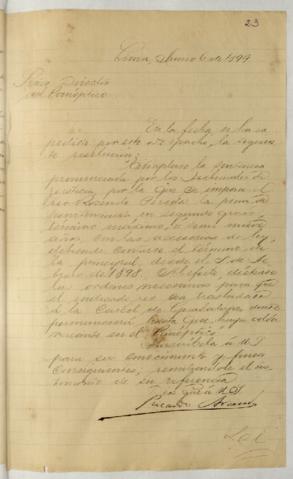 23
Lima, Junio 6 de 1899
Señor Director
del Panóptico.
En la fecha se ha ex
pedido por este despacho, la siguien
te resolución:
"Cúmplase la sentencia
pronunciada por los Tribunales de
Justicia, por la que se impone al
reo Rosendo Pereda la pena de
penitenciaría en segundo grado,
término máximo, ó sean nueve
años, con las accesorias de ley,
debiendo contarse el término de
la principal, desde el 1º de
de 1898. Al efecto, díctense
las órdenes necesarias para que
el indicado reo sea trasladado
á la Cárcel de Guadalupe, donde
permanecerá hasta que haya celda
vacante en el Panóptico"
Trascríbola á U.S.
para su conocimiento y fines
consiguientes, remitiéndole el tes
timonio de su referencia
Dios gue á U.S.
Ricardo